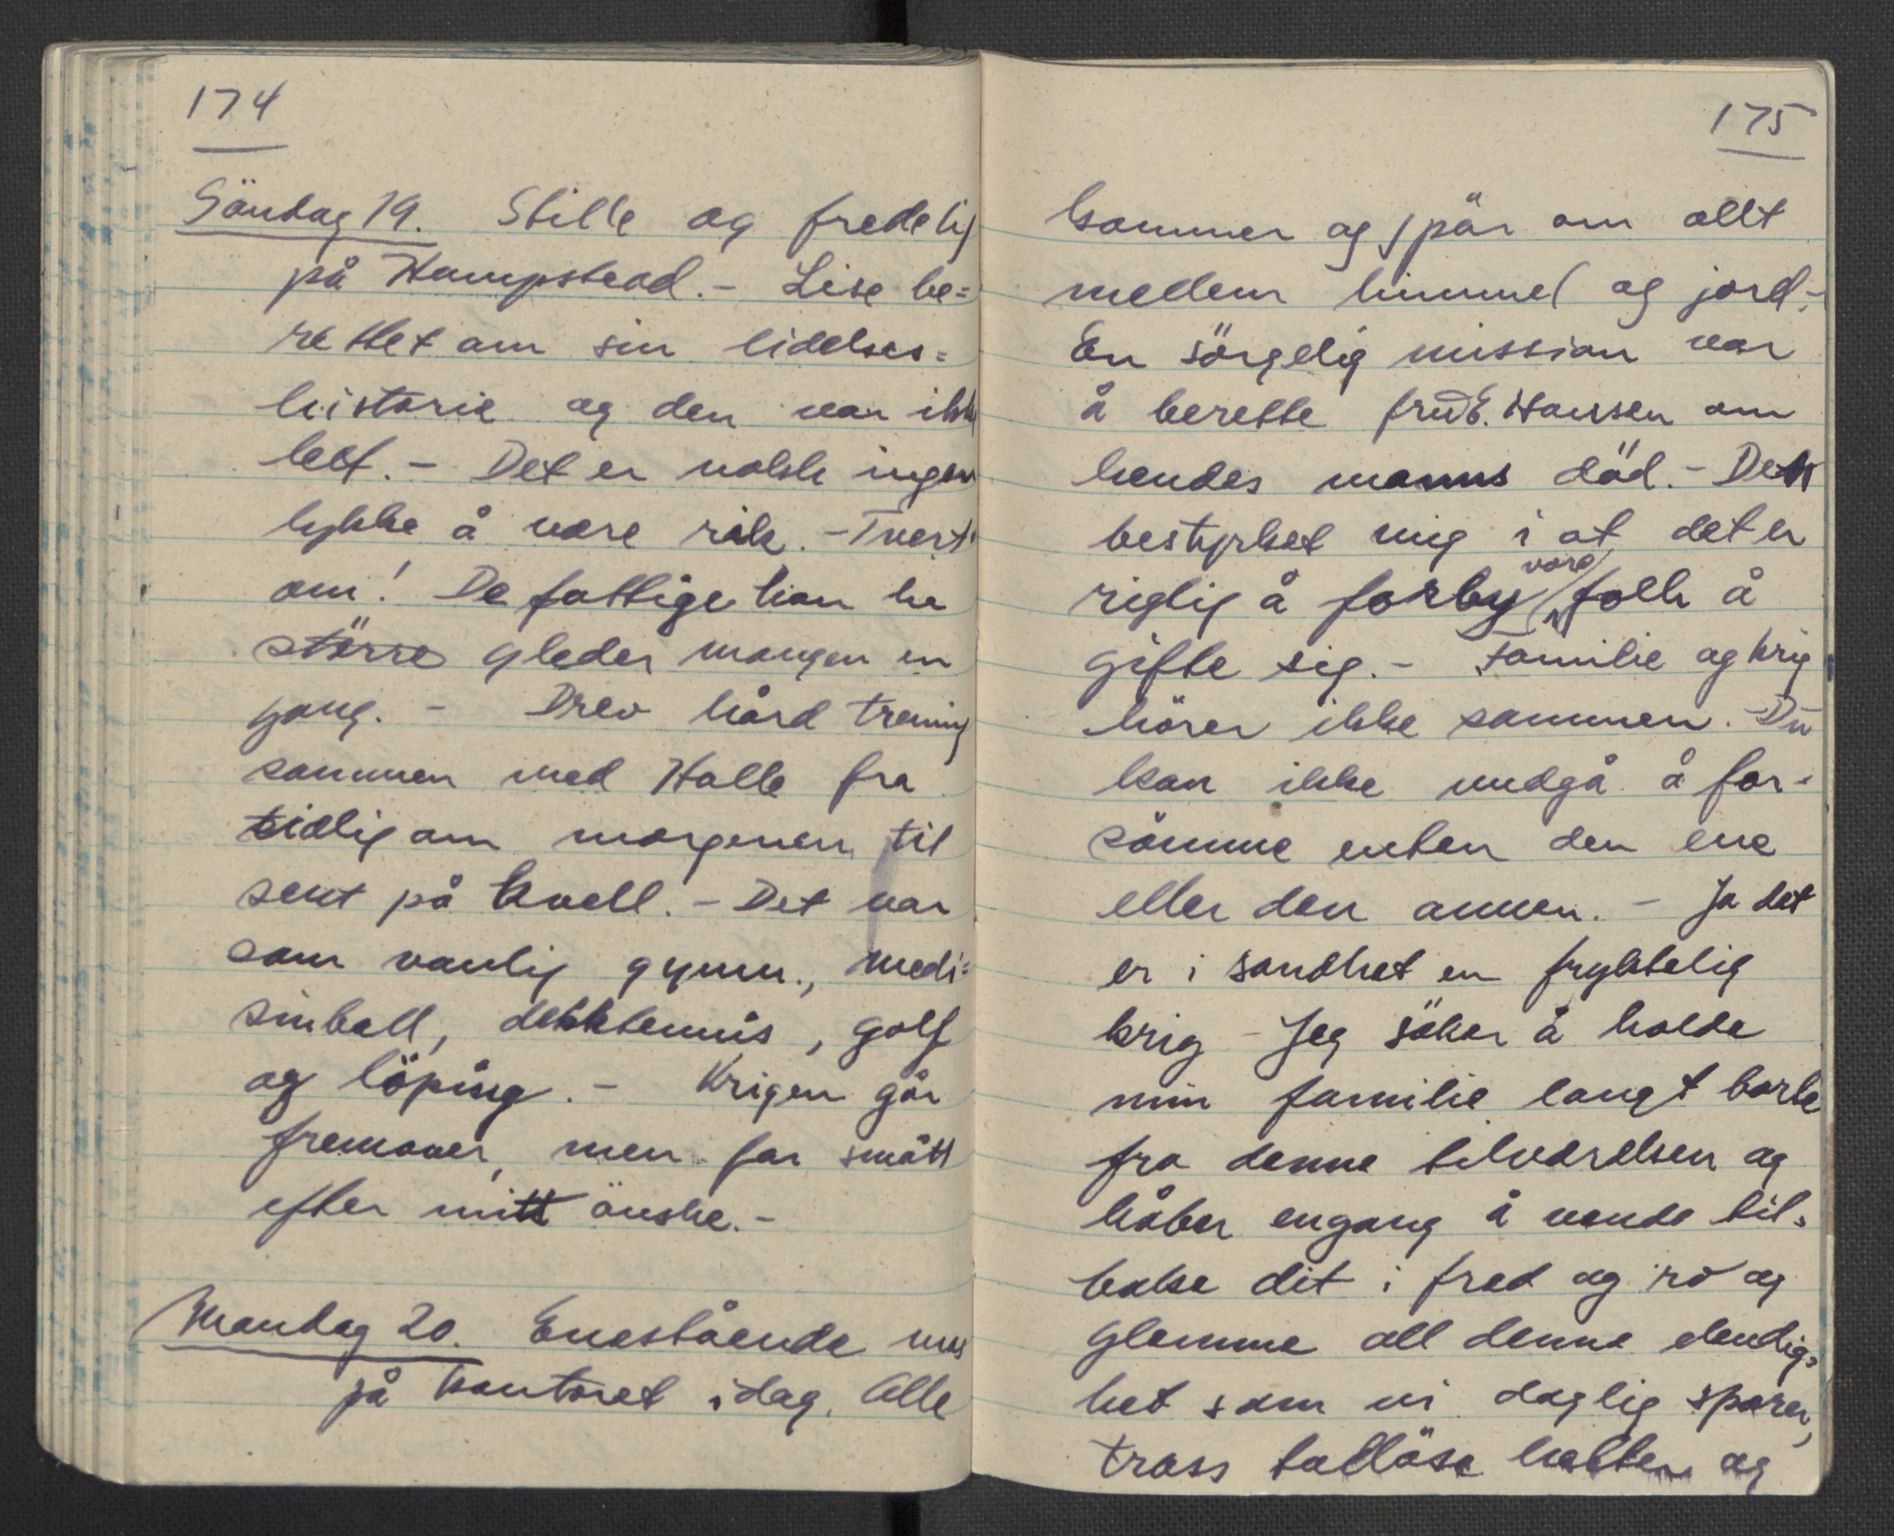 174
Söndag 19. Stille og fredelig
på Hampstead. - Lise be=
rettet om sin lidelses=
historie og den var ikke
lett. - Det er nokk ingen
lykke å være rik. - Tvert
om! De fattige kan ha
större gleder mangen en
gang. - Drev hård trening
sammen med Halle fra
tidlig om morgenen til
sent på kvell. - Det var
som vanlig gymn., medi=
sinball, dekktennis, golf
og löping. - Krigen går
fremover, men for smått
efter mitt önske. -
Mandag 20. Enestående mas
på kontoret idag. Alle
175
kommer og spör om allt
mellem himmel og jord. -
En sörgelig mission var
å berette fru E. Hansen om
hendes manns död. - Det
bestyrket mig i at det er
rigtig å forby våre folk å
gifte sig. - Familie og krig
hörer ikke sammen. - Du
kan ikke undgå å for-
sömme enten den ene
eller den annen. - Ja det
er i sandhet en fryktelig
krig - Jeg söker å holde
min familie langt borte
fra denne tilværelsen og
håber engang å vende til-
bake dit i fred og ro og
glemme all denne elendig=
het som vi daglig sporer,
trass talløse helter og